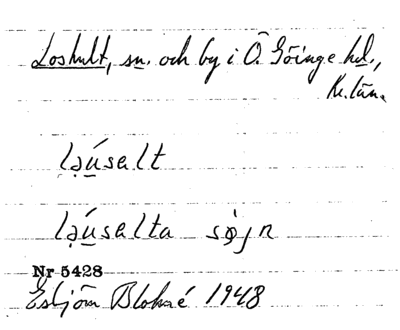 Loshult, sn. och by i Ö. Göinge hd.,
Kr. län.
lạúsalt
lạúsalta søjn
Nr 5428
Esbjörn Blohmé 1948